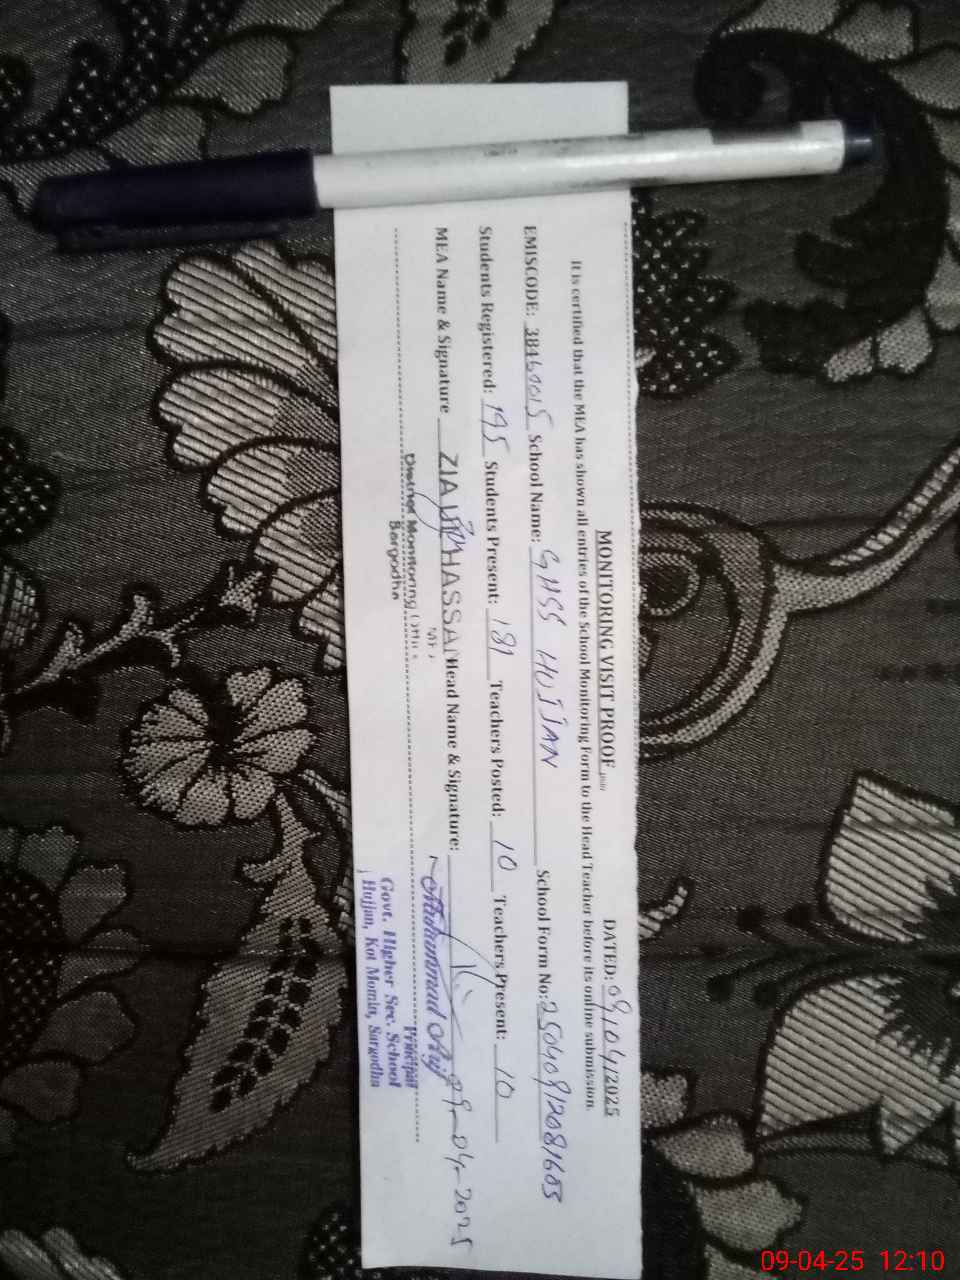 MONITORING VISIT PROOF DATED: 09/04/2025
It is certified that the MEA has shown all entries of the School Monitoring Form to the Head Teacher before its online submission.
EMISCODE: 38460015 School Name: GHSS HUJJAN School Form No: 2504091208165
Students Registered: 195 Students Present: 181 Teachers Posted: 10 Teachers Present: 10
MEA Name & Signature ZIA UL HASSAN Head Name & Signature:
09-04-2025
District Monitoring Office
Sargodha
Muhammad Arif
Principal
Govt. Higher Sec. School
Hujjan, Kot Momin, Sargodha
09-04-25 12:10